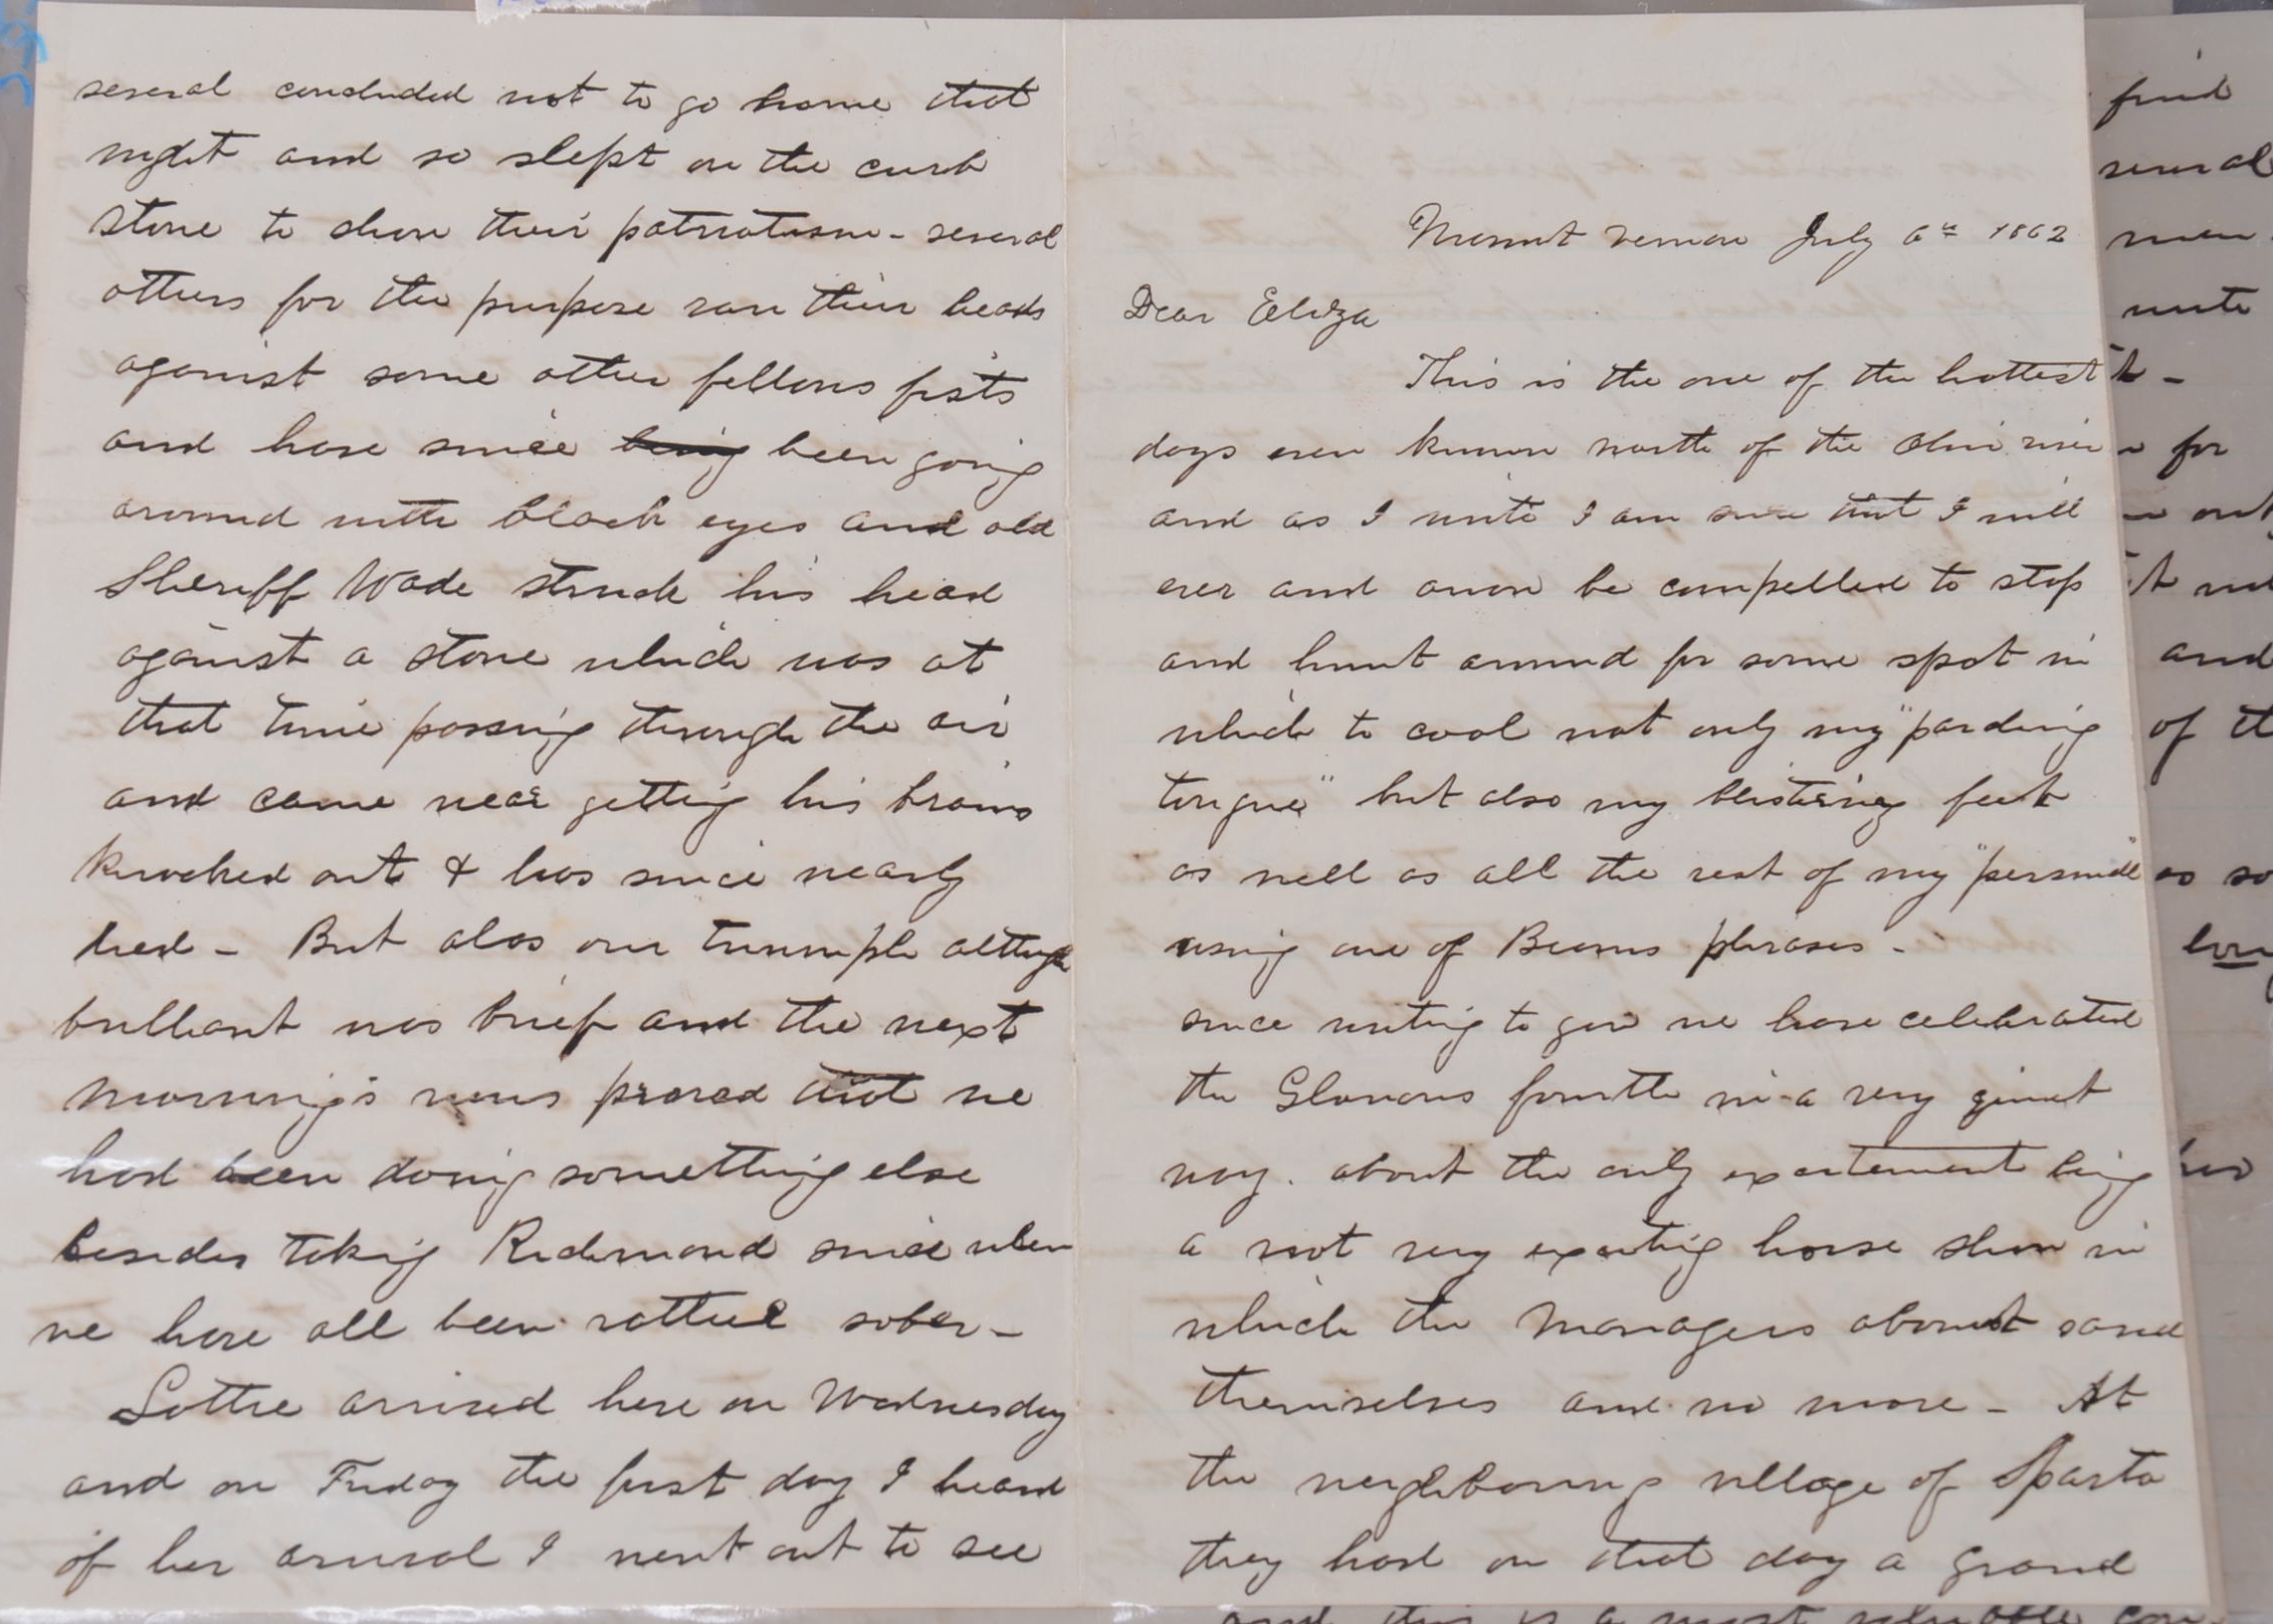 several concluded not to go home that
night and so slept on the curb
stone to show their patriotism - several
others for the purpose ran their heads
against some other fellows fists
and have since being been going
around with black eyes and old
Sheriff Wade struck his head
against a stone which was at
that time passing through the air
and came near getting his brains
knocked out & has since nearly
died - But alas our triumph although
brilliant was brief and the next
morning's news proved that we
had been doing something else
besides taking Richmond since when
we have all been rather sober -
Lottie arrived here on Wednesday
and on Friday the first day I heard
of her arrival I went out to see
Mount Vernon July 6th 1862
Dear Eliza
This is the one of the hottest
days ever known north of the Ohio river
and as I write I am sure that I will
ever and anon be compelled to stop
and hunt around for some spot in
which to cool not only my "parching
tongue" but also my blistering feet
as well as all the rest of my "personnel"
using one of Beams phrases -
since writing to you we have celebrated
the Glorious fourth in a very quiet
way. about the only excitement being
a not very exciting horse show in
which the managers about saved
themselves and no more - At
the neighboring village of Sparta
they had on that day a grand
find
several
men
write
t -
for
out
and
of t
as so
long
and this is a most valuable